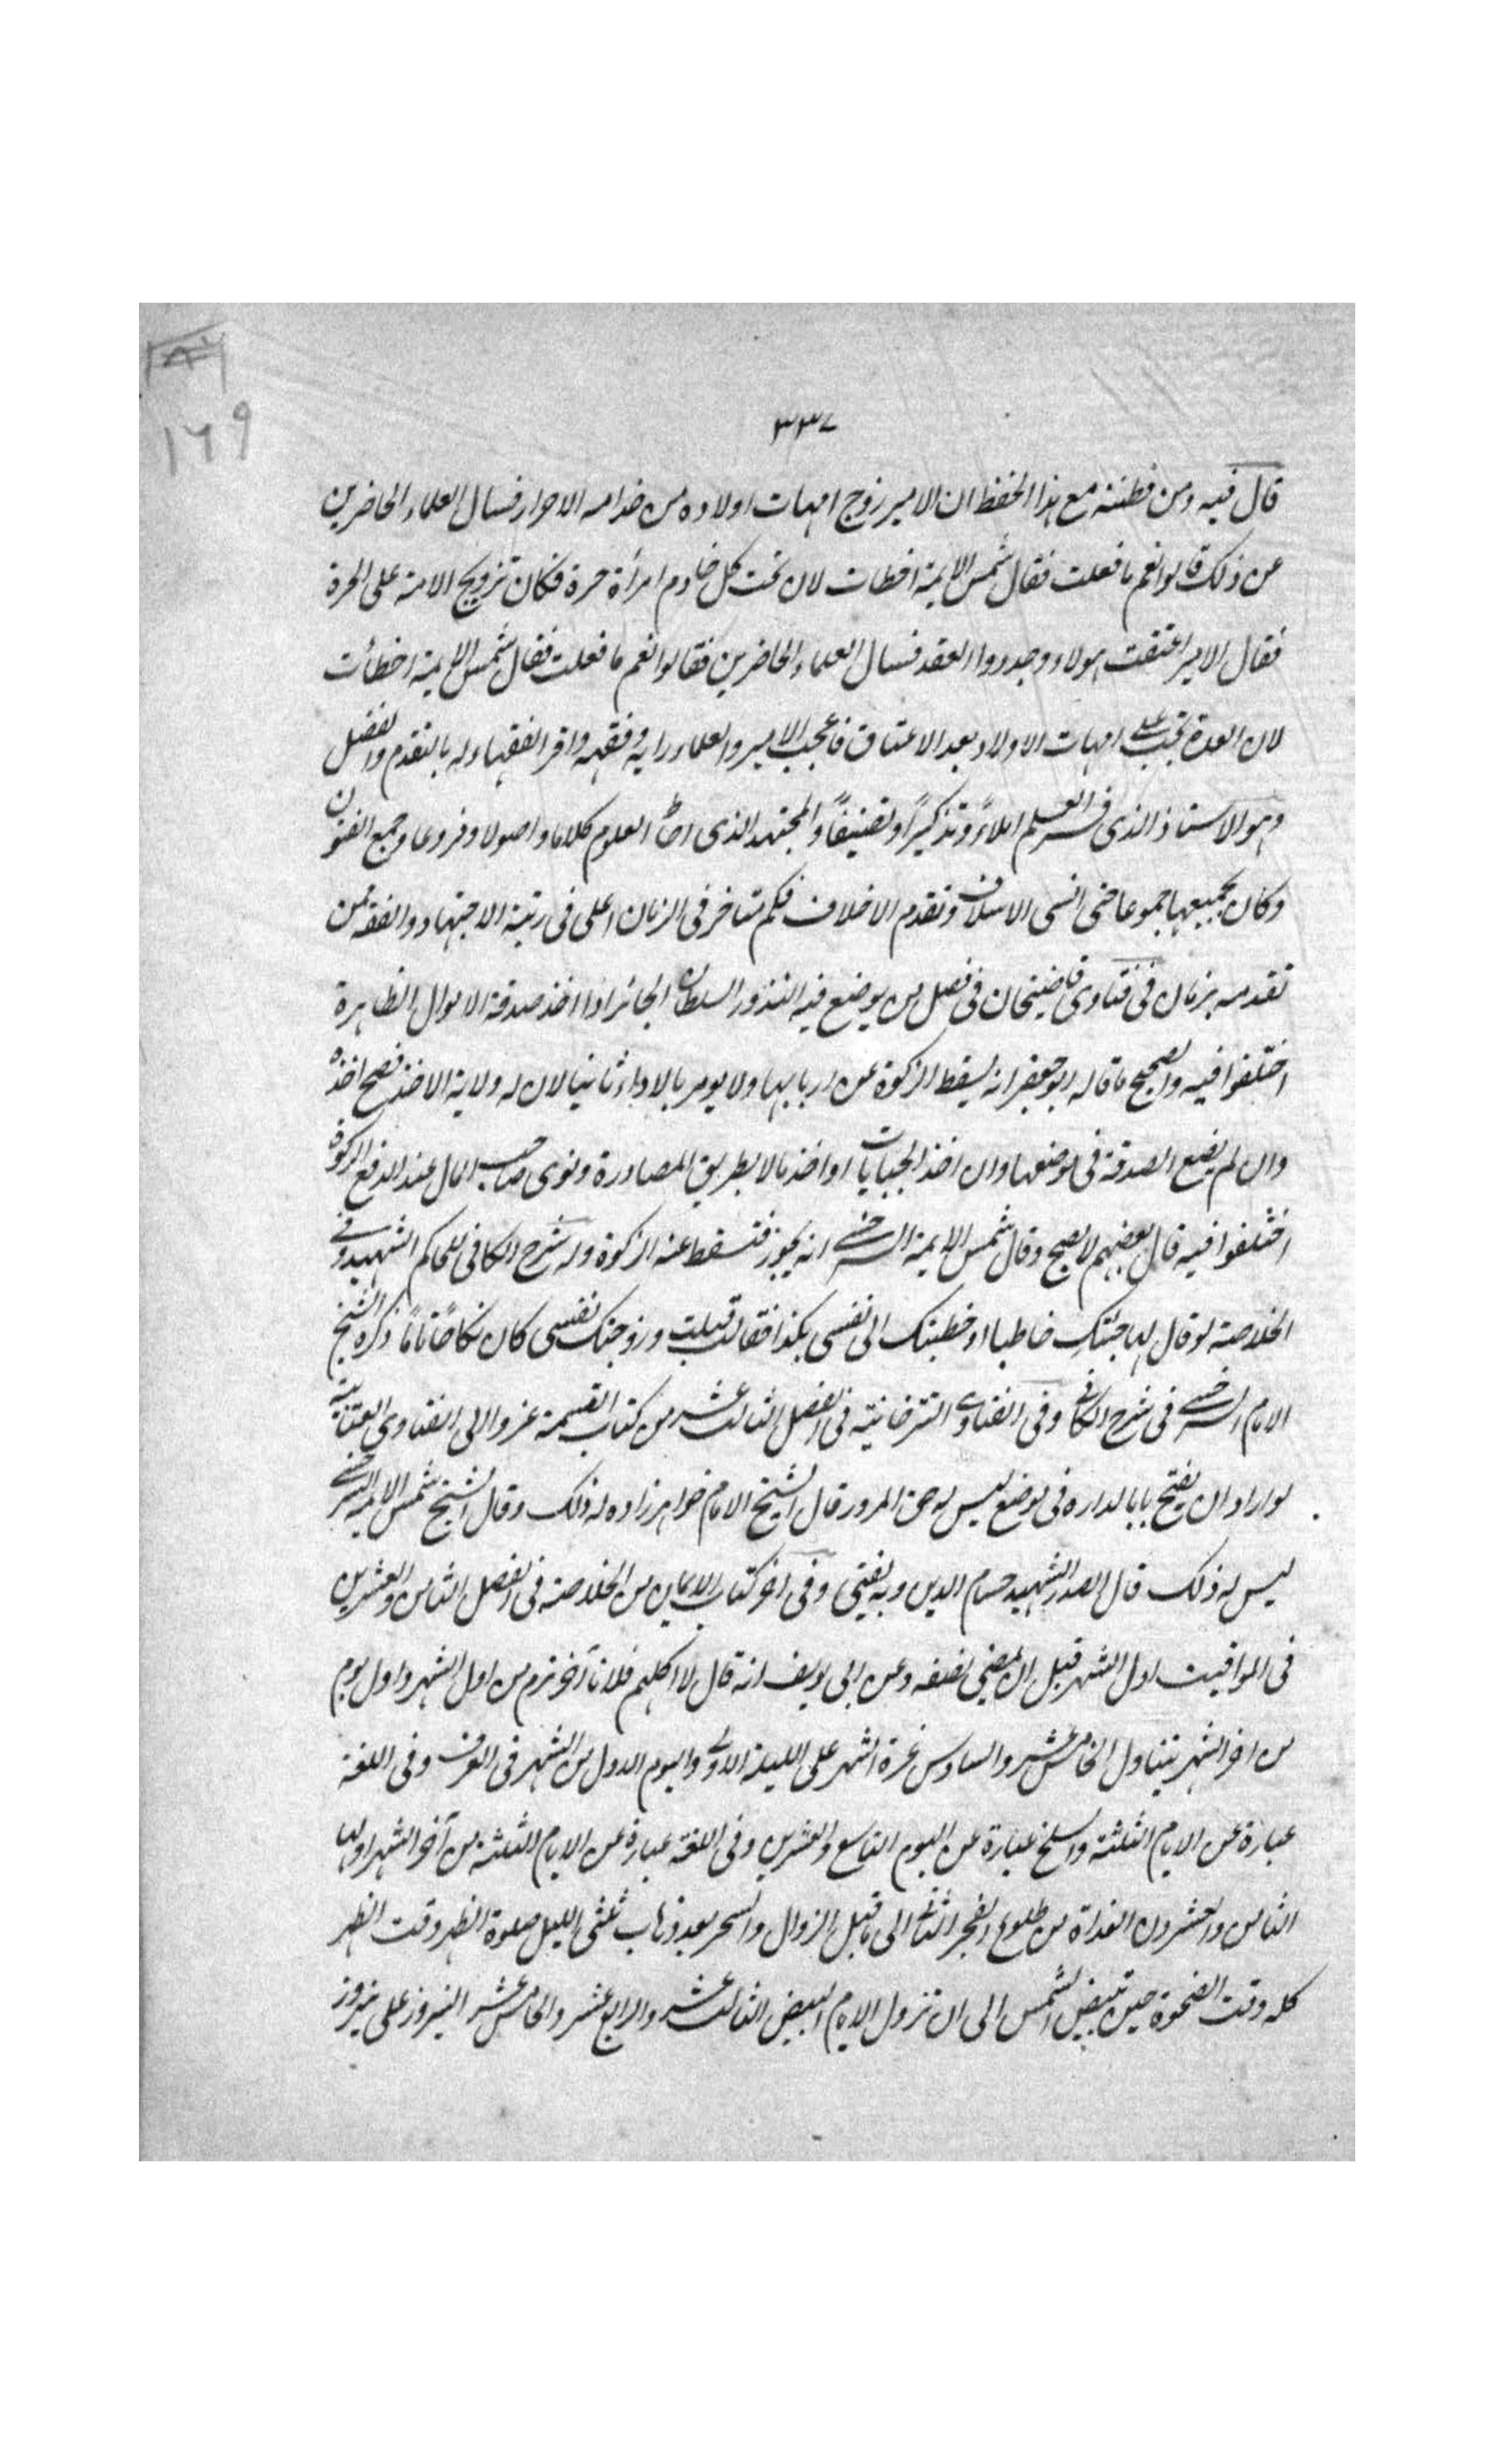 ١٦٩
٣٣٧
قال فيه ومن فطنته مع هذا الحفظ ان الامير زوج امهات اولاده من خدامه الاحرار فسال العلماء الحاضرين
عن ذلك قالوا نعم ما فعلت فقال شمس الايمة اخطات لان تحت كل خادم امرأة حرة فكان تزويج الامة على الحرة
فقال الامير اعتقت هولاء وجددوا العقد فسال العلماء الحاضرين فقالوا نعم ما فعلت فقال شمس الايمة اخطأت
لان العدة تجب على امهات الاولاد بعد الاعتاق فاعجب الامير والعلماء رايه وفقهه واقر الفقهاء له بالتقدم والفضل
وهو الاستاذ الذى العلم املاءً وتذكيرًا وتصنيفًا والمجتهد الذى العلوم كلاما واصولا وفروعا وجمع الفنون
وكان بجميعها جموعا حتى انسى الاسلاف وتقدم الاخلاف فكم متاخر فى الزمان اعلى فى رتبة الاجتهاد والفقه ممن
تقدمه بزمان فى فتاوى قاضيخان فى فصل من يوضع فيه النذور السلطان الجائر اذا اخذ صدقة الاموال الظاهرة
اختلفوا فيه والصحيح ما قاله ابو جعفر انه يسقط الزكوة عن اربابها ولا يومر بالاداء ثانيا لان له ولاية الاخذ فصح اخذه
وان لم يضع الصدقة فى موضعها وان اخذ الجبايات او اخذ مالا بطريق المصادرة ونوى صاحب المال عند الدفع الزكوة
اختلفوا فيه قال بعضهم لا يصح وقال شمس الايمة السرخسى انه يجوز فتسقط عنه الزكوة وله شرح الكافى للحاكم الشهيد وفى
الخلاصة لو قال لها جئتك خاطبا او خطبتك الى نفسى بكذا فقالت قبلت وزوجتك نفسى كان نكاحًا تامًا ذكره الشيخ
الامام السرخسى فى شرح الكافى وفى الفتاوى التترخانية فى الفصل الثالث عشر من كتاب القسمة عزوا الى الفتاوى العتابية
لو اراد ان يفتح بابا لداره فى موضع ليس له حق المرور قال الشيخ الامام خواهرزاده له ذلك وقال الشيخ شمس الايمة السرخسى
ليس له ذلك قال الصدر الشهيد حسام الدين وبه يفتى وفى اخر كتاب الايمان من الخلاصة فى الفصل الثامن والعشرين
فى المواقيت اول الشهر قبل ان يمضى نصفه وعن ابى يوسف انه قال لا اكلم فلانا آخر يوم من اول الشهر واول يوم
من اخر الشهر يتناول الخامس عشر والسادس غرة الشهر على الليلة الاولى واليوم الاول من الشهر فى العرف وفى اللغة
عبارة عن الايام الثلثة والسلخ عبارة عن اليوم التاسع والعشرين وفى اللغة عبارة عن الايام الثلثة من آخر الشهر اولها
الثامن والعشرون الغداة من طلوع الفجر الثانى الى ما قبل الزوال والسحر بعد ذهاب ثلثى الليل صلوة الظهر وقت الظهر
كله وقت الضحوة حين تبيض الشمس الى ان تزول الايام البيض الثالث عشر والرابع عشر والخامس عشر النيروز على نيروز